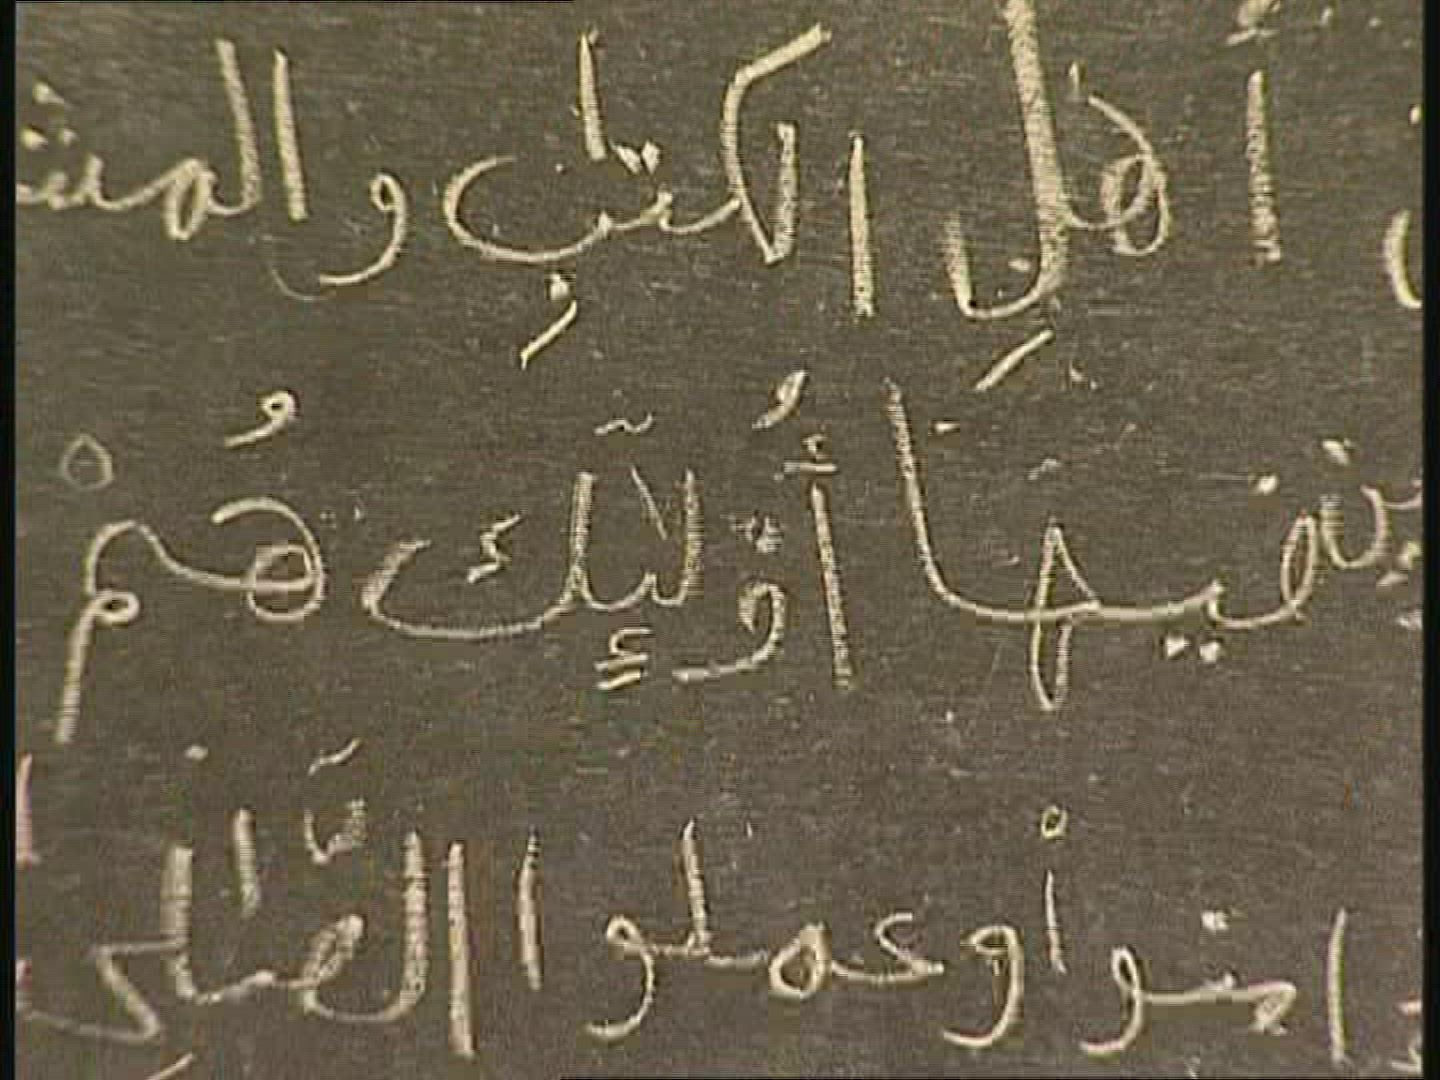 أهلِ الكتٰبِ والمش
ين فيها أُولٰٓئك هُمْ
ءامنوا وعملوا الصّٰلح